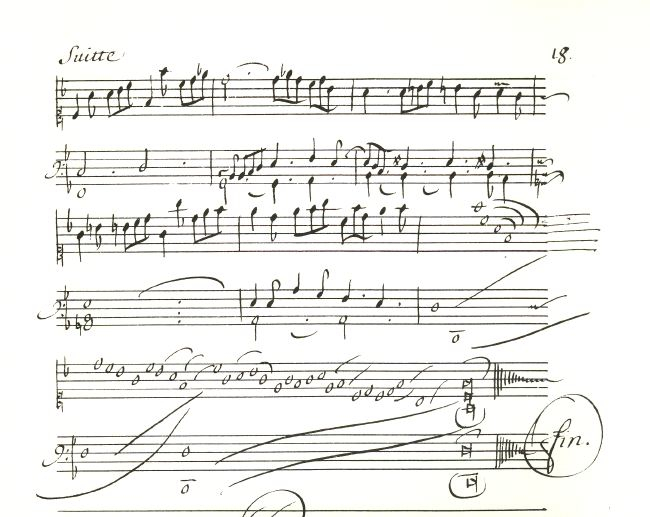 Suitte
18.
fin.